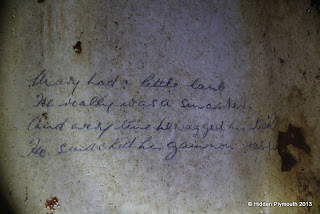 Mary had a little lamb
He really was a smasher.
And every time he wagged his tail
He his gammon
© Hidden Plymouth 2013